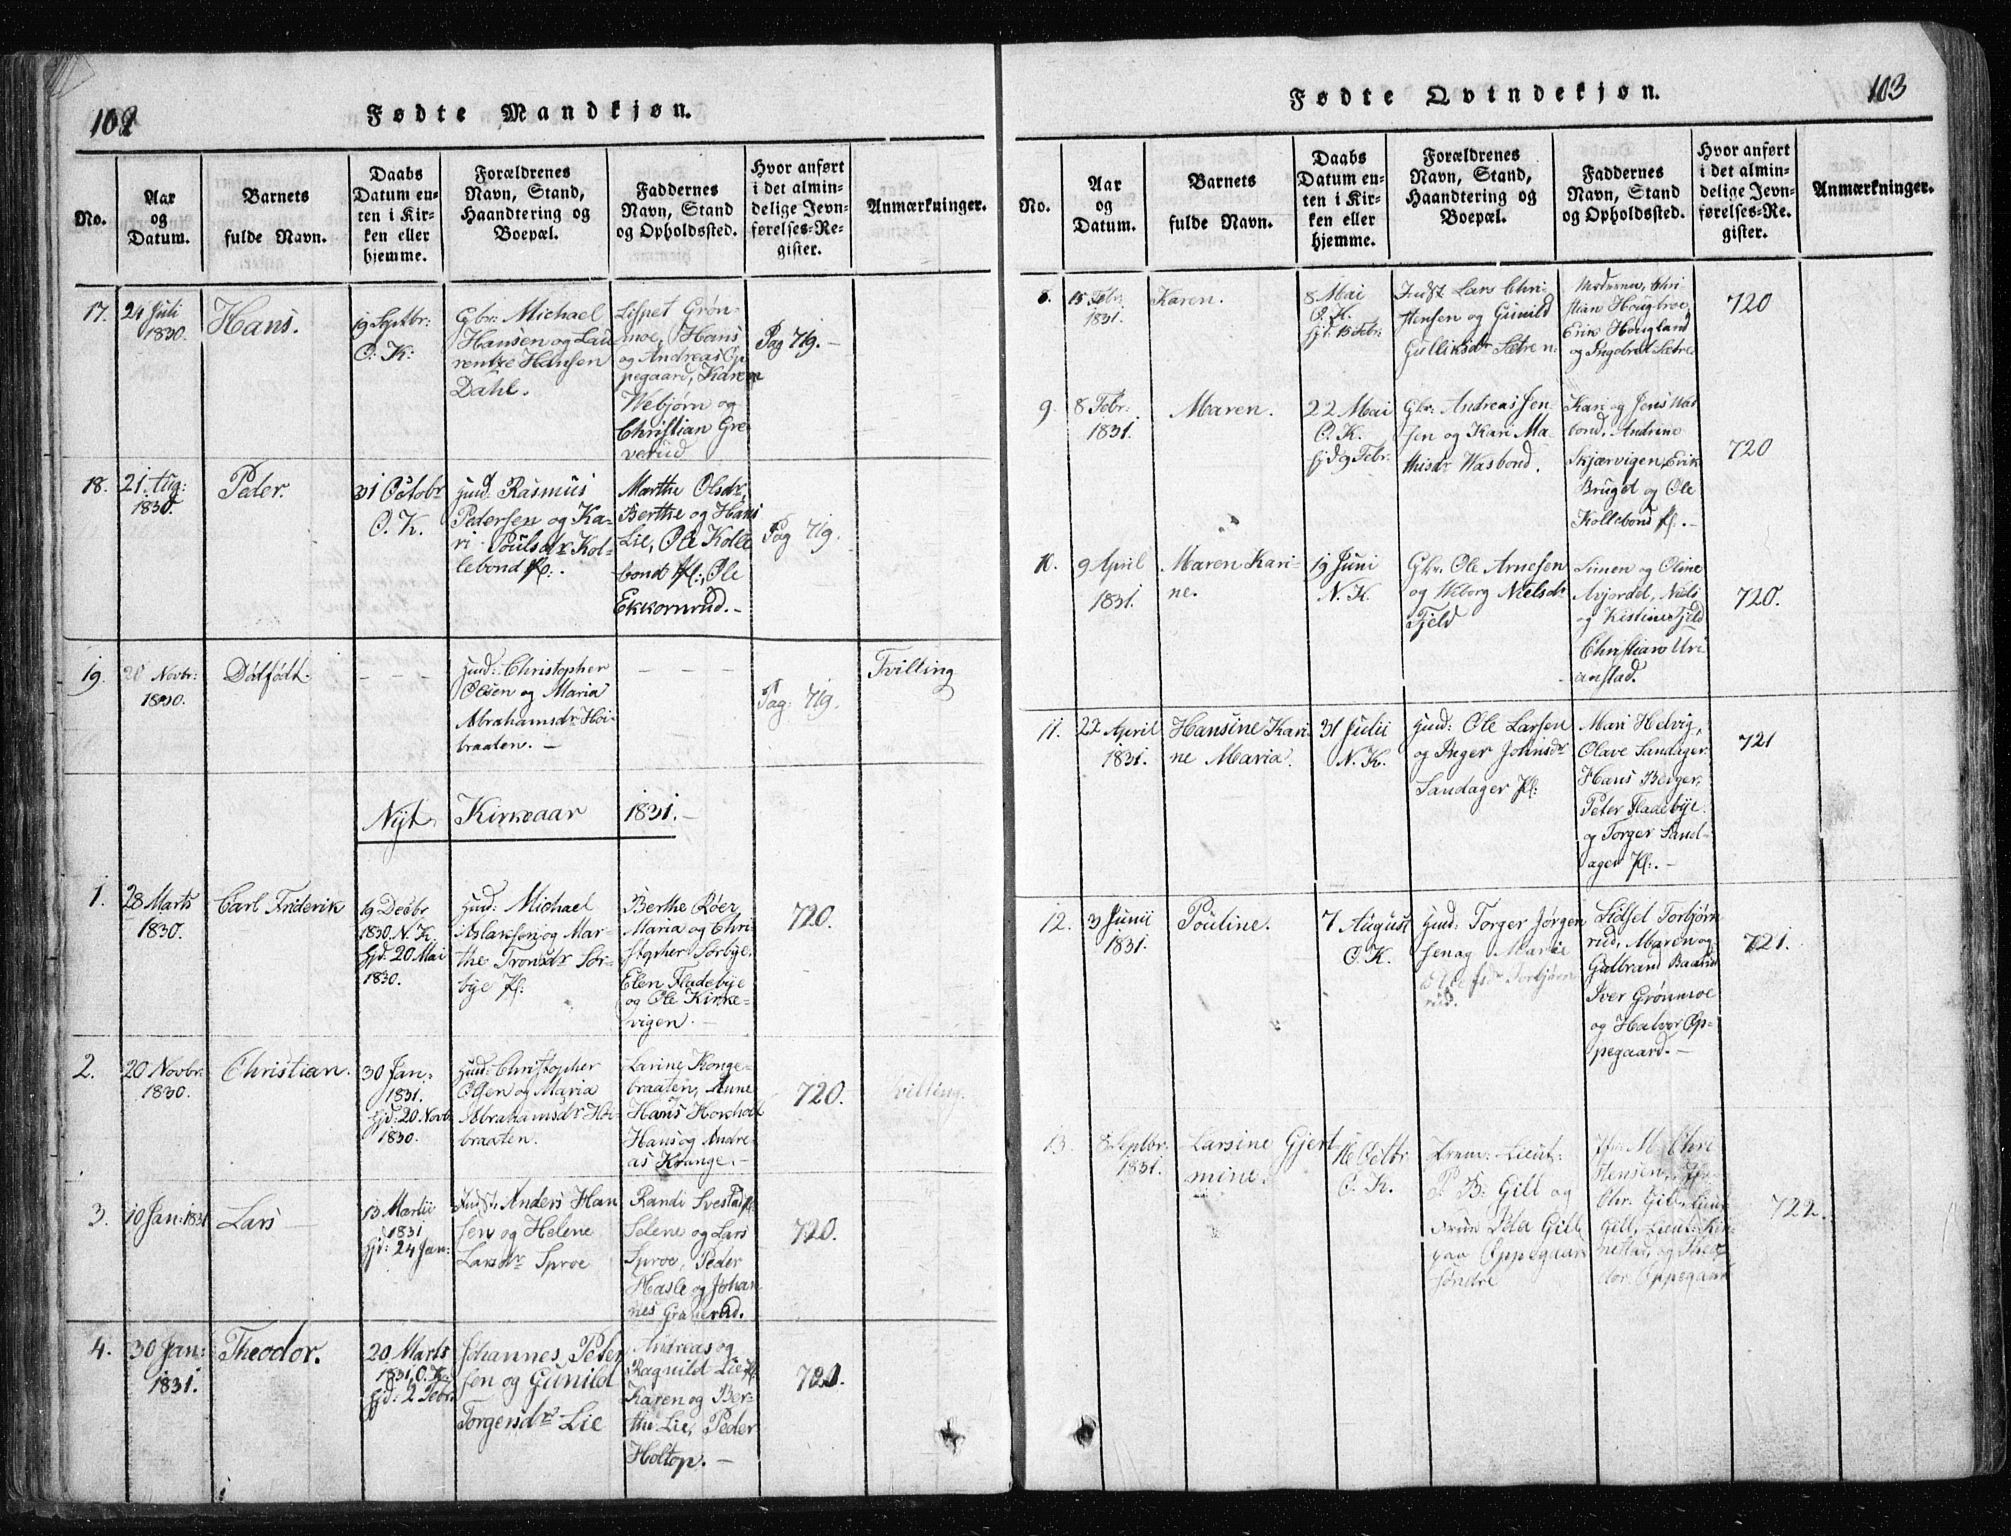 102
Fødte Mandkjøn.
No.
Aar
og
Datum.
Barnets
fulde Navn.
Daabs
Datum en-
ten i Kir-
ken eller
hjemme.
Forældrenes
Navn, Stand,
Haandtering og
Boepæl.
Faddernes
Navn, Stand
og Opholdssted.
Hvor anført
i det almin-
delige Jevn-
førelses-Re-
gister.
Anmærkninger.
17.
24 Juli
1830.
Hans.
19 Septbr:
O. K:
Gbr: Michael
Hansen og Lau
rentze Hansen
Dahl.
Lispet Grøn-
moe, Hans
og Andreas Op
pegaard, Karen
Webjørn og
Christian Gre
verud
Pag 719.
18.
21. Aug:
1830.
Peder.
31 Octobr
O. K.
Huusm. Rasmus
Pedersen og Ka-
ri Poulsdr Kol-
lebond Pl:.
Marthe Olsdr,
Berthe og Hans
Lie, Ole Kolle
bond Pl:, Ole
Ekkornrud.
Pag 719.
19.
20 Novbr:
1830.
Dødfødt.
Huusm: Christopher
Olsen og Maria
Abrahamsdr Høi-
braaten.
Pag: 719.
Tvilling
Nyt Kirkeaar 1831.
1.
28 Marts
1830.
Carl Friderik
19 Decbr
1830. N. K.
Hjd: 20 Mai
1830.
Michael
Aslaksen og Mar-
the Tronsdr Sør-
bye Pl:
Berthe Røer
Maria og Chri-
stopher Sørbye,
Elen Fladebye
og Ole Kirke-
vigen.
720.
2.
20 Novbr.
1830.
Christian.
30 Jan:
1831.
Hjd: 20 Novb
1830.
Christopher
Olsen og Maria
Abrahamsdr Høi-
braaten.
Larine Konge-
braaten, Anne
Hans
Hans og Andre-
as Krange.
720.
Tvilling.
3.
10 Jan: 1831
Lars
13 Martii
1831
Hjd: 24 Jan:
Anders Han
sen og Helene
Larsdr Sproe
Randi Svestad Pl
Selene og Lars
Sproe, Peder
Hasle og Johan
nes Graverud.
720.
4.
30 Jan:
1831.
Theodor.
20 Marts
1831 O. K.
Hjd: 2 Febr
Johannes Peder
sen og Gunild
Torgersdr Lie
Andreas og
Ragnild Lie Pl
Karen og Ber-
the Lie, Peder
Holtop.
720.
103
Fødte Qvindekjøn.
No.
Aar
og
Datum.
Barnets
fulde Navn.
Daabs
Datum en-
ten i Kir-
ken eller
hjemme.
Forældrenes
Navn, Stand,
Haandtering og
Boepæl.
Faddernes
Navn, Stand
og Opholdssted.
Hvor anført
i det almin-
delige Jevn-
førelses-Re-
gister.
Anmærkninger.
8.
15 Febr
1831.
Karen.
8 Mai
O. K.
Lars Chri-
stensen og Gunild
Gulliksdr Sætren:
Moderen, Chri
stian Hougbroe
Erik Hougland
og Ingebret Sætre
720
9.
8 Febr:
1831.
Maren.
22 Mai
O. K.
Hjd 9 Febr:
Gbr: Andreas Jen-
sen og Kari Ma-
thisdr Wasbond.
Kari og Jens Was
bond, Andrine
Skjærvigen, Erik
Bruget og Ole
Kollebond Pl:.
720
10.
9 April
1831.
Maren Kari-
ne.
19 Juni
N. K.
Gbr. Ole Arnesen
og Wiborg Nielsdr
Fjeld
Simen og Oline
Niels
og Kistine Fjeld
Christian Uri
anstad.
720.
11.
22 April
1831.
Hansine Kari
ne Maria.
31 Julii
N. K.
Ole Larsen
og Inger Johnsdr
Sandager Pl:
Mari Helvig,
Olave Sandager
Hans Berger,
Peter Fladebye
og Torger Sand-
ager Pl:.
721
12.
3 Junii
1831.
Pouline.
7 August
O. K.
Torger Jørgen
sen og Marie
Torbjørn
rud.
Lidset Torbjørn
rud, Maren og
Gulbrand
Iver Grønmoe
og Halvor Op-
pegaard.
721.
13.
8 Septbr.
1831.
Larsine Gjert
mine.
16 Octbr
O. K.
Prem: Lieut:
P. B: Gill og
Frue
paa Oppegaard
søndre
M. Chri
stensen,
Chr.
Gill, Lieut:
og Theo
dor Oppegaard
722.